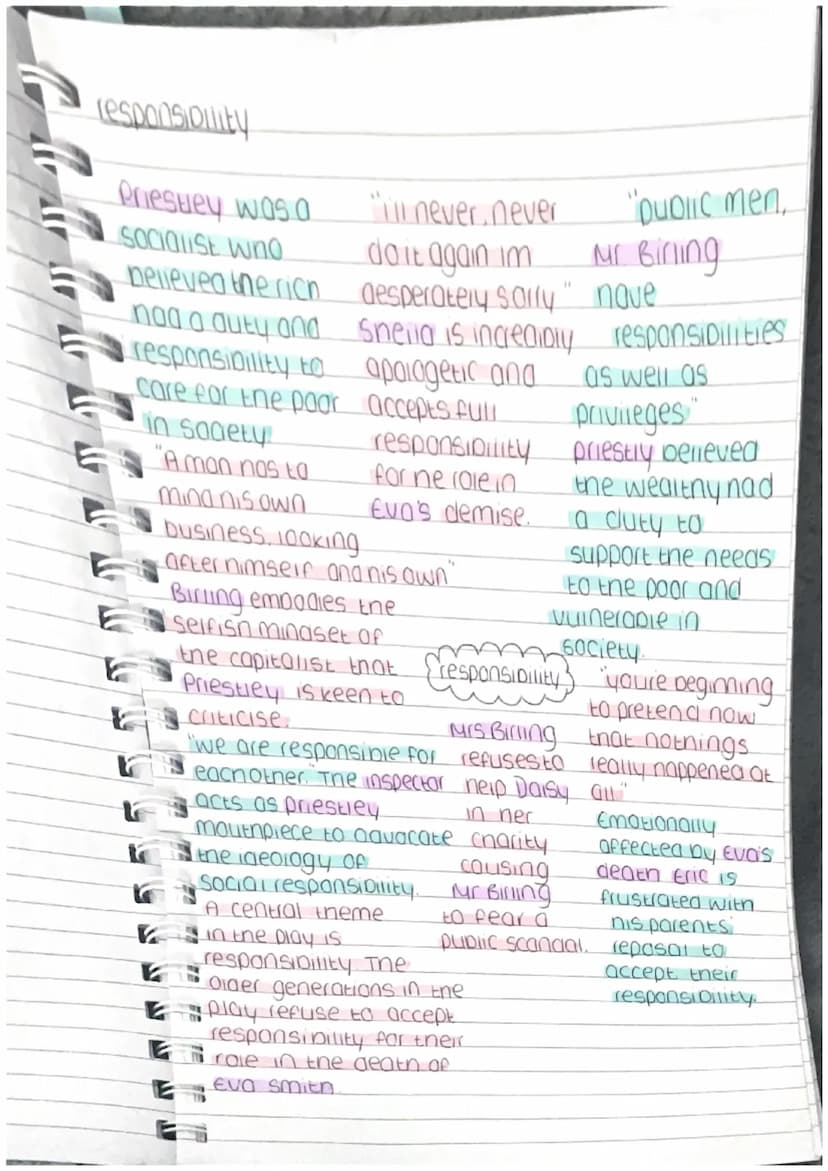 responsibility
Priestley was a
socialist who
believed the rich
had a duty and
responsibility to
care for the poor
in society.
"A man has to
mind his own
business, looking
after himself and his own"
Birling embodies the
selfish mindset of
the capitalist that
Priestley is keen to
criticise.
"we are responsible for
eachother." The inspector
acts as priestley
mouthpiece to advocate
the ideology of
social responsibility.
A central theme
in the play is
responsibility The
older generations in the
play refuse to accept
responsibility for their
role in the death of
Eva smith.
"ill never, never
do it again im
desperately sorry"
Sheila is incredibly
apologetic and
accepts full
responsibility
for he role in
Eva's demise.
responsibility
Mrs Birling
refuses to
help Daisy
in her
charity
causing
Mr Birling
to fear a
public scandal.
"public men,
Mr Birling
have
responsibilities
as well as
privileges"
priestly believed
the wealthy had
a duty to
support the needs
to the poor and
vulnerable in
society.
"you're beginning
to pretend now
that nothings
really happened at
all"
Emotionally
affected by Eva's
death Eric is
frustrated with
his parents'
reposal to
accept their
responsibility.